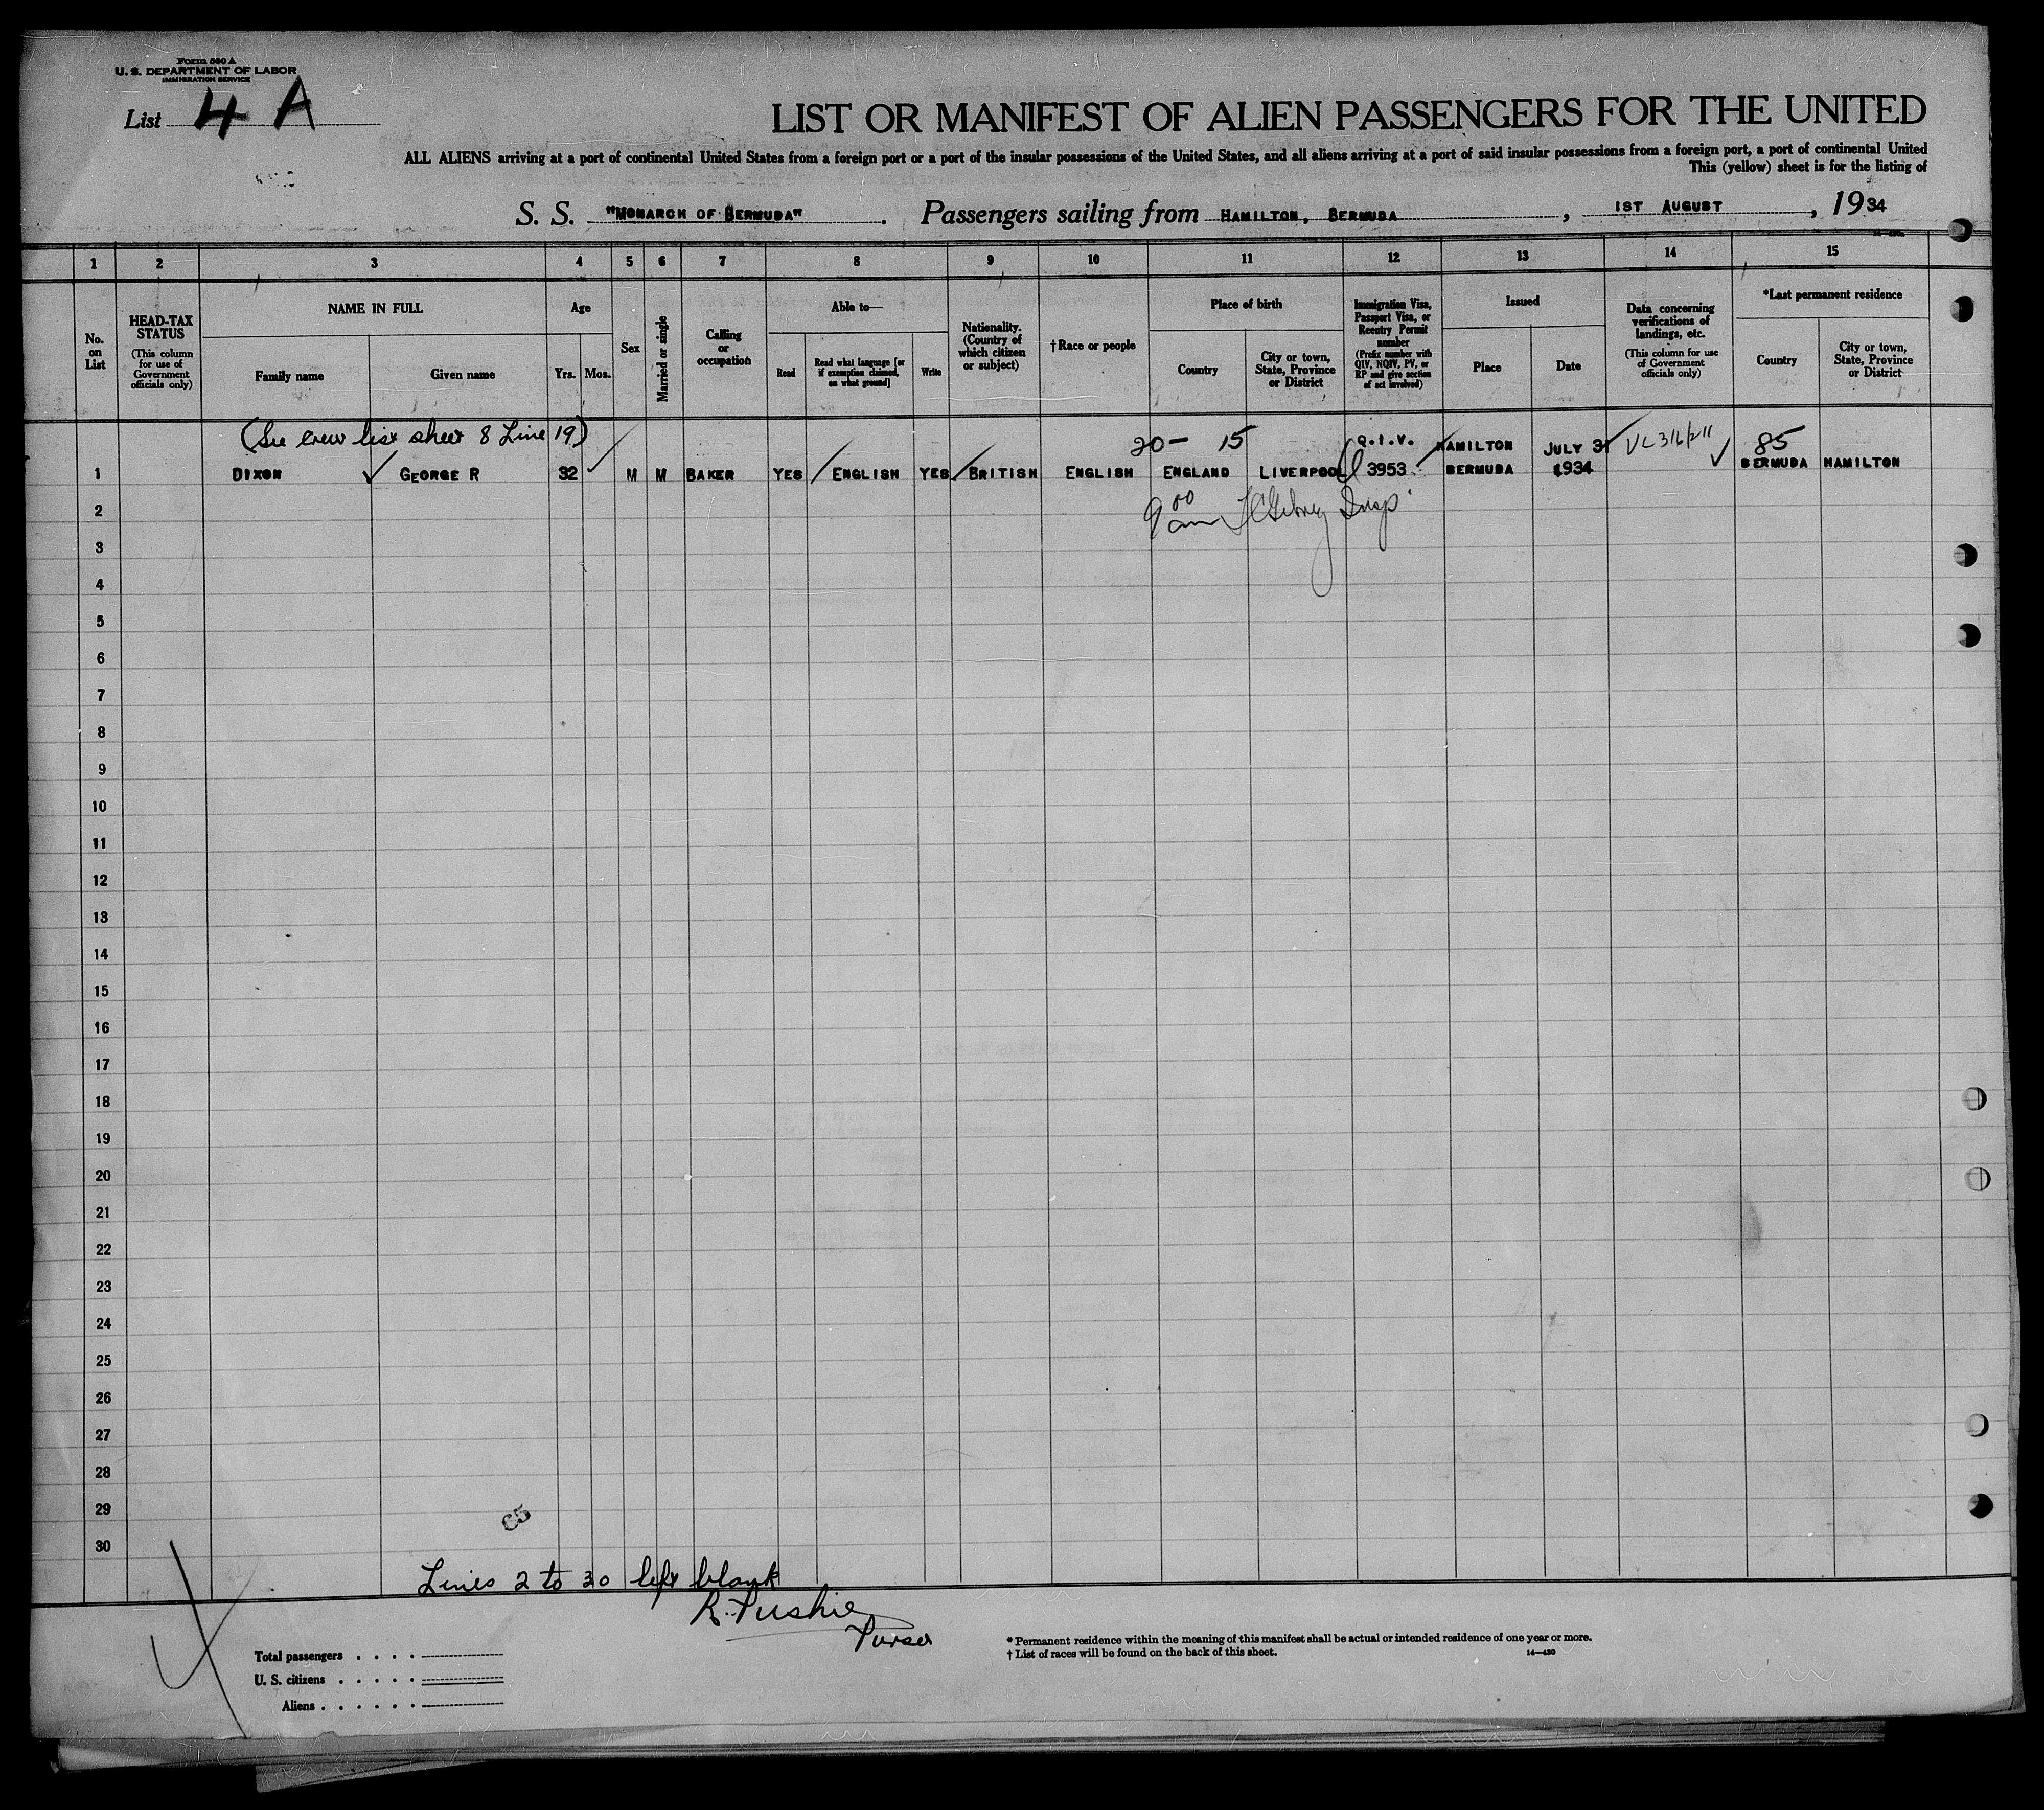 Form 500 A
U. S. DEPARTMENT OF LABOR
IMMIGRATION SERVICE
List 4 A
LIST OR MANIFEST OF ALIEN PASSENGERS FOR THE UNITED
ALL ALIENS arriving at a port of continental United States from a foreign port or a port of the insular possessions of the United States, and all aliens arriving at a port of said insular possessions from a foreign port, a port of continental United
This (yellow) sheet is for the listing of
S. S. "MONARCH OF BERMUDA". Passengers sailing from HAMILTON, BERMUDA, 1ST AUGUST, 1934
1 2 3 4 5 6 7 8 9 10 11 12 13 14 15
No. on List
HEAD-TAX STATUS
(This column for use of Government officials only)
NAME IN FULL
Family name
Given name
Age
Yrs.
Mos.
Sex
Married or single
Calling or occupation
Able to—
Read
Read what language [or if exemption claimed, on what ground]
Write
Nationality. (Country of which citizen or subject)
†Race or people
Place of birth
Country
City or town, State, Province or District
Immigration Visa, Passport Visa, or Reentry Permit number
(Prefix number with QIV, NQIV, PV, or RP and give section of act involved)
Issued
Place
Date
Data concerning verifications of landings, etc.
(This column for use of Government officials only)
*Last permanent residence
Country
City or town, State, Province or District
(See crew list sheet 8 Line 19)
20- 15 Q.I.V. HAMILTON JULY 31 85
1 DIXON GEORGE R 32 M M BAKER YES ENGLISH YES BRITISH ENGLISH ENGLAND LIVERPOOL 3953 BERMUDA 1934 BERMUDA HAMILTON
2 9 00 am Insp.
3
4
5
6
7
8
9
10
11
12
13
14
15
16
17
18
19
20
21
22
23
24
25
26
27
28
29
30
Lines 2 to 30 left blank
R. Pushie
Purser
Total passengers
U. S. citizens
Aliens
* Permanent residence within the meaning of this manifest shall be actual or intended residence of one year or more.
† List of races will be found on the back of this sheet.
14—430